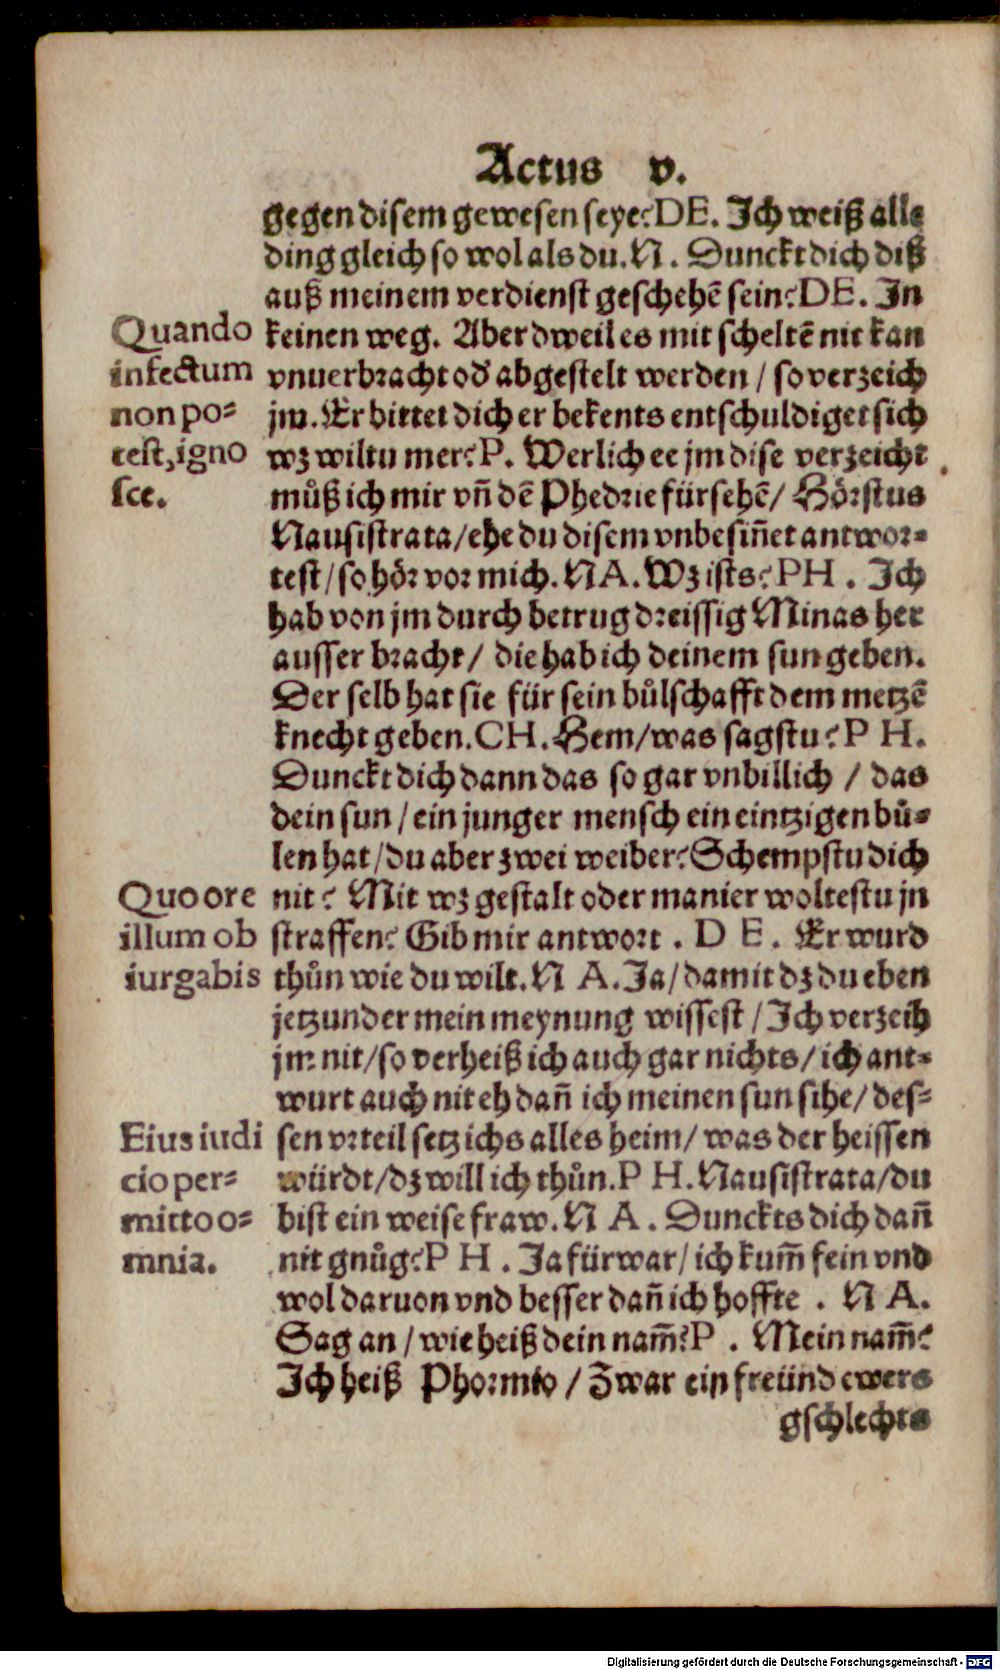 Actus v.
gegen disem gewesen seye? DE. Ich weiß alle
ding gleich so wol als du. N. Dunckt dich diß
auß meinem verdienst geschehē sein? DE. In
keinen weg. Aber dweil es mit scheltē nit kan
vnuerbracht od' abgestelt werden / so verzeich
jm. Er bittet dich er bekents entschuldiget sich
wz wiltu mer? P. Werlich ee jm dise verzeicht
můß ich mir vñ dē Phedrie fürsehē / Hörstus
Nausistrata / ehe du disem vnbesiñet antwor⸗
test / so hör vor mich. NA. Wz ists? PH. Ich
hab von jm durch betrug dreissig Minas her
ausser bracht / die hab ich deinem sun geben.
Der selb hat sie für sein bůlschafft dem metzē
knecht geben. CH. Hem / was sagstu? PH.
Dunckt dich dann das so gar vnbillich / das
dein sun / ein junger mensch ein eintzigen bů⸗
len hat / du aber zwei weiber? Schempstu dich
nit? Mit wz gestalt oder manier woltestu jn
straffen? Gib mir antwort. DE. Er wurd
thůn wie du wilt. NA. Ja / damit dz du eben
jetzunder mein meynung wissest / Ich verzeih
jm nit / so verheiß ich auch gar nichts / ich ant⸗
wurt auch nit eh dañ ich meinen sun sihe / des⸗
sen vrteil setz ichs alles heim / was der heissen
würdt / dz will ich thůn. PH. Nausistrata / du
bist ein weise fraw. NA. Dunckts dich dañ
nit gnůg? PH. Ja fürwar / ich kum̄ fein vnd
wol daruon vnd besser dañ ich hoffte. NA.
Sag an / wie heiß dein nam̄? P. Mein nam̄?
Ich heiß Phormio / Zwar ein freünd ewers
gschlechts
Quando
infectum
non po⸗
test, igno
sce.
Quo ore
illum ob
iurgabis
Eius iudi
cio per⸗
mitto o⸗
mnia.
Digitalisierung gefördert durch die Deutsche Forschungsgemeinschaft - DFG